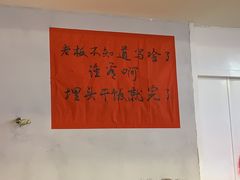 老板不知道写啥了
淮看啊
埋头干饭就完了